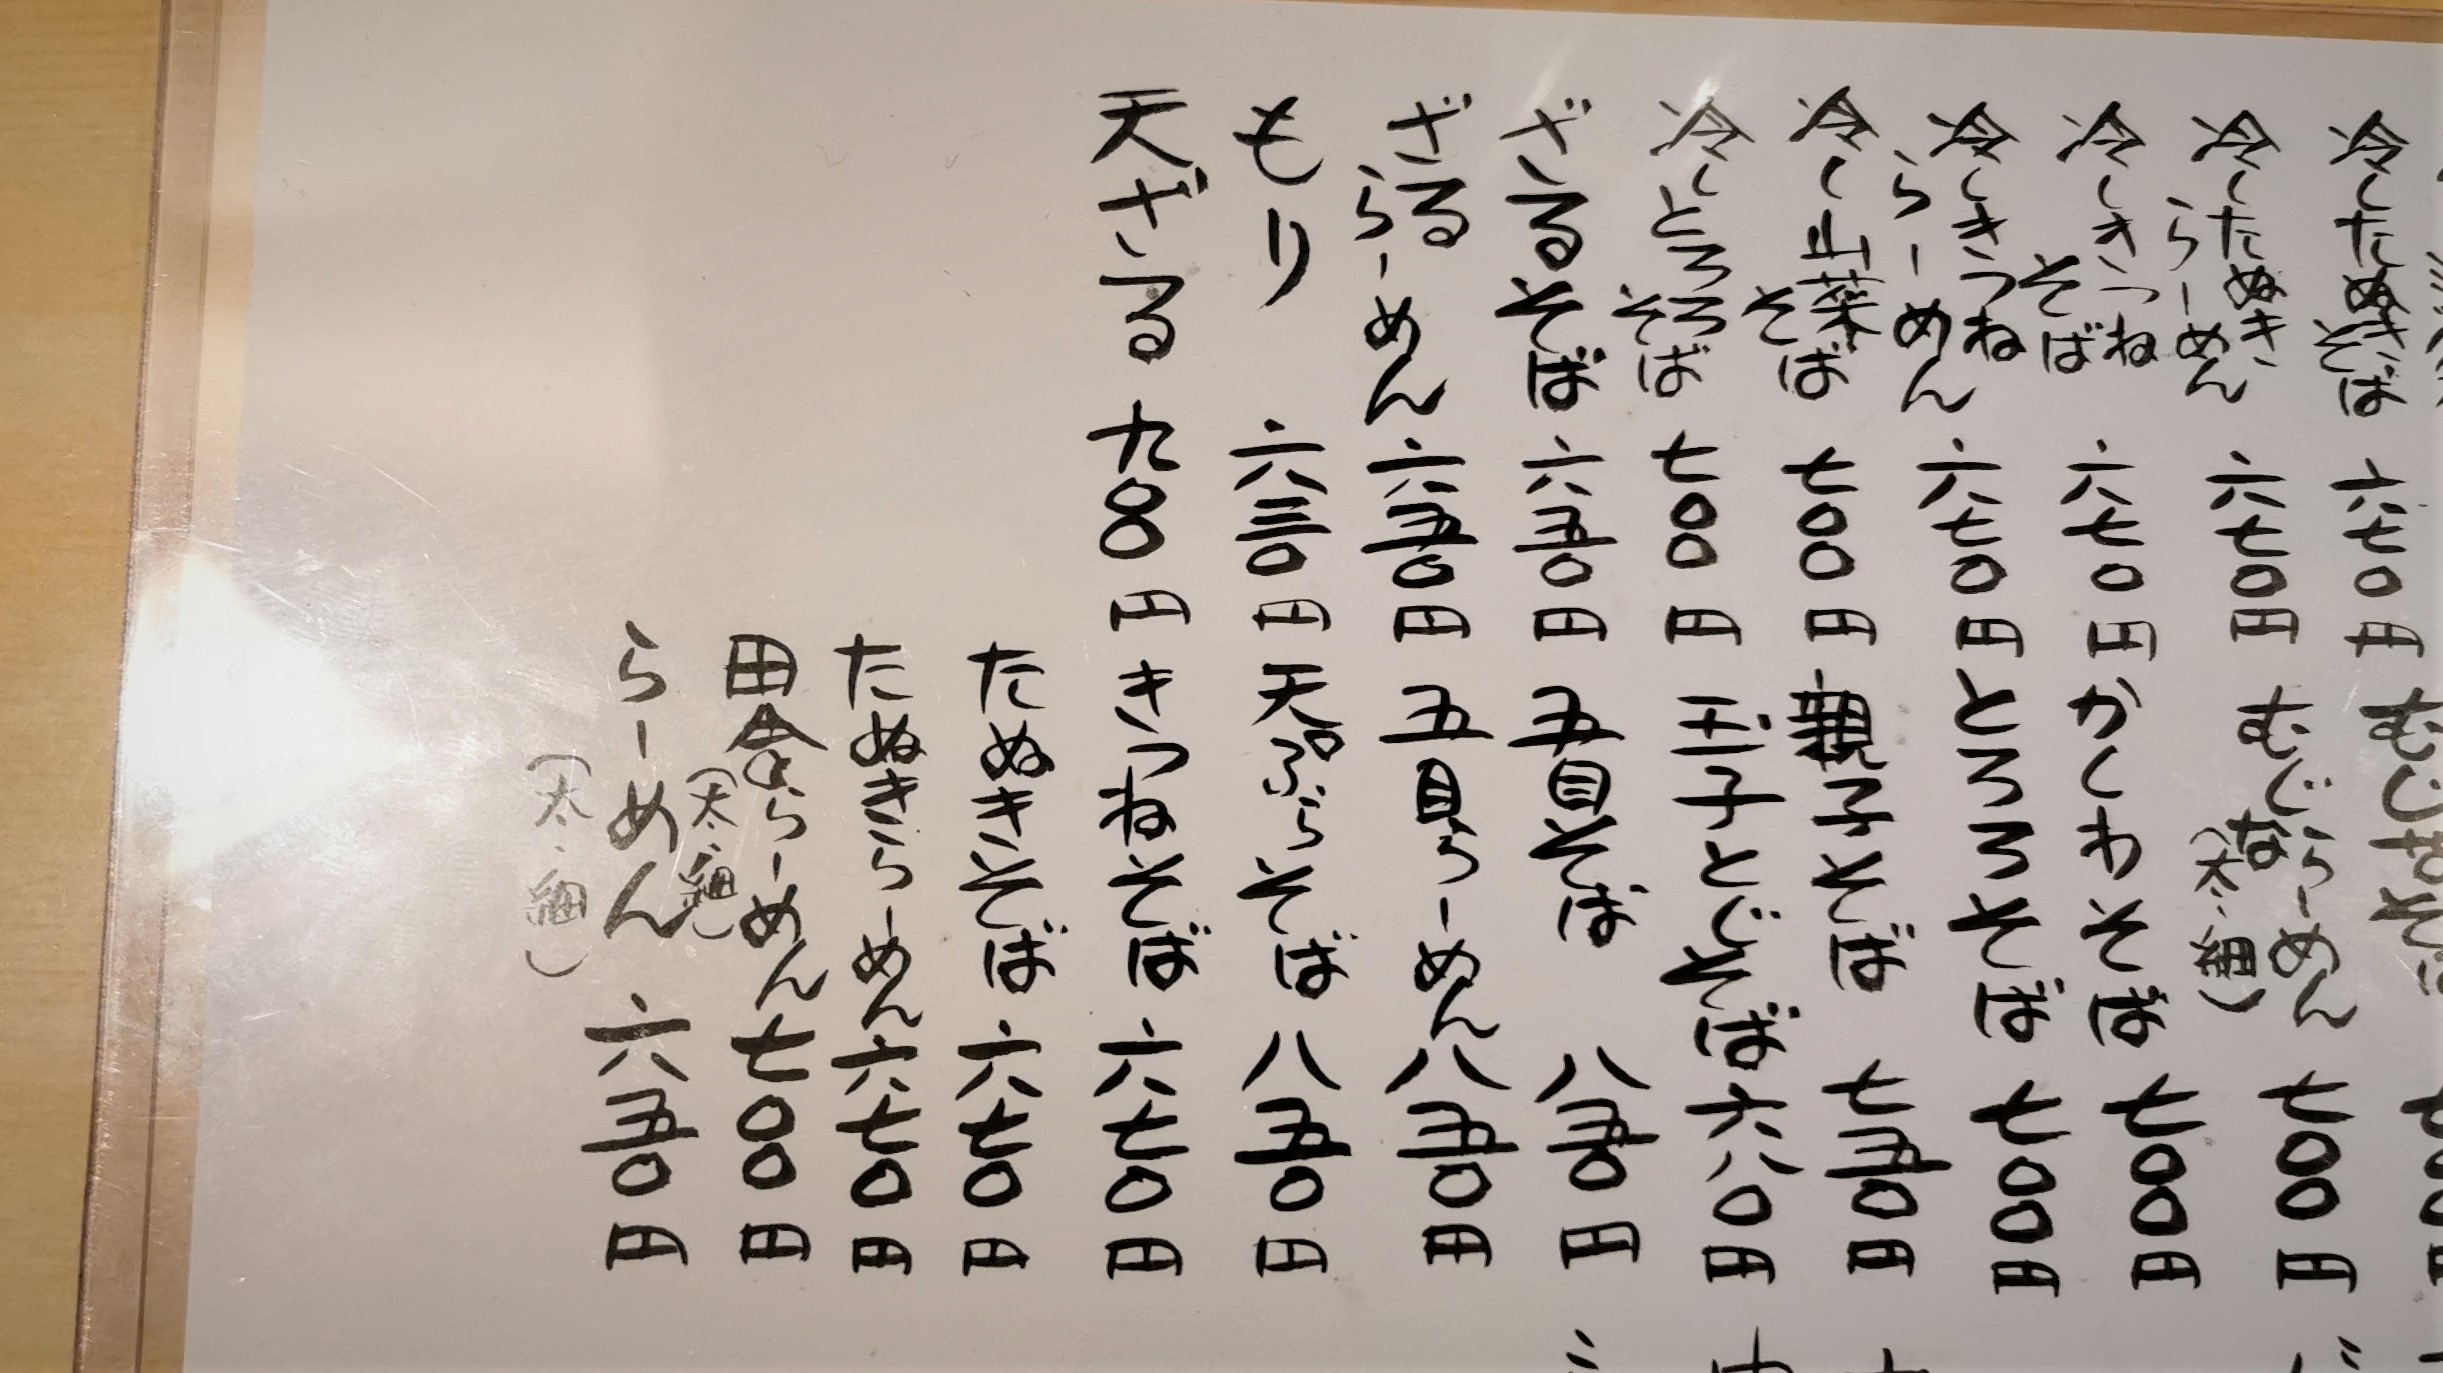 冷したぬきそば 六七〇円
冷したぬきらーめん 六七〇円
冷しきつねそば 六七〇円
冷しきつねらーめん 六七〇円
冷し山菜そば 七〇〇円
冷しとろろそば 七〇〇円
ざるそば 六五〇円
ざるらーめん 六五〇円
もり 六三〇円
天ざる 九〇〇円
むじなそば 七〇〇
むじならーめん(太・細) 七〇〇円
かしわそば 七〇〇円
とろろそば 七〇〇円
親子そば 七五〇円
玉子とじそば 六八〇円
五目そば 八五〇円
五目らーめん 八五〇円
天ぷらそば 八五〇円
きつねそば 六七〇円
たぬきそば 六七〇円
たぬきらーめん 六七〇円
田舎らーめん(太・細) 七〇〇円
らーめん(太・細) 六五〇円